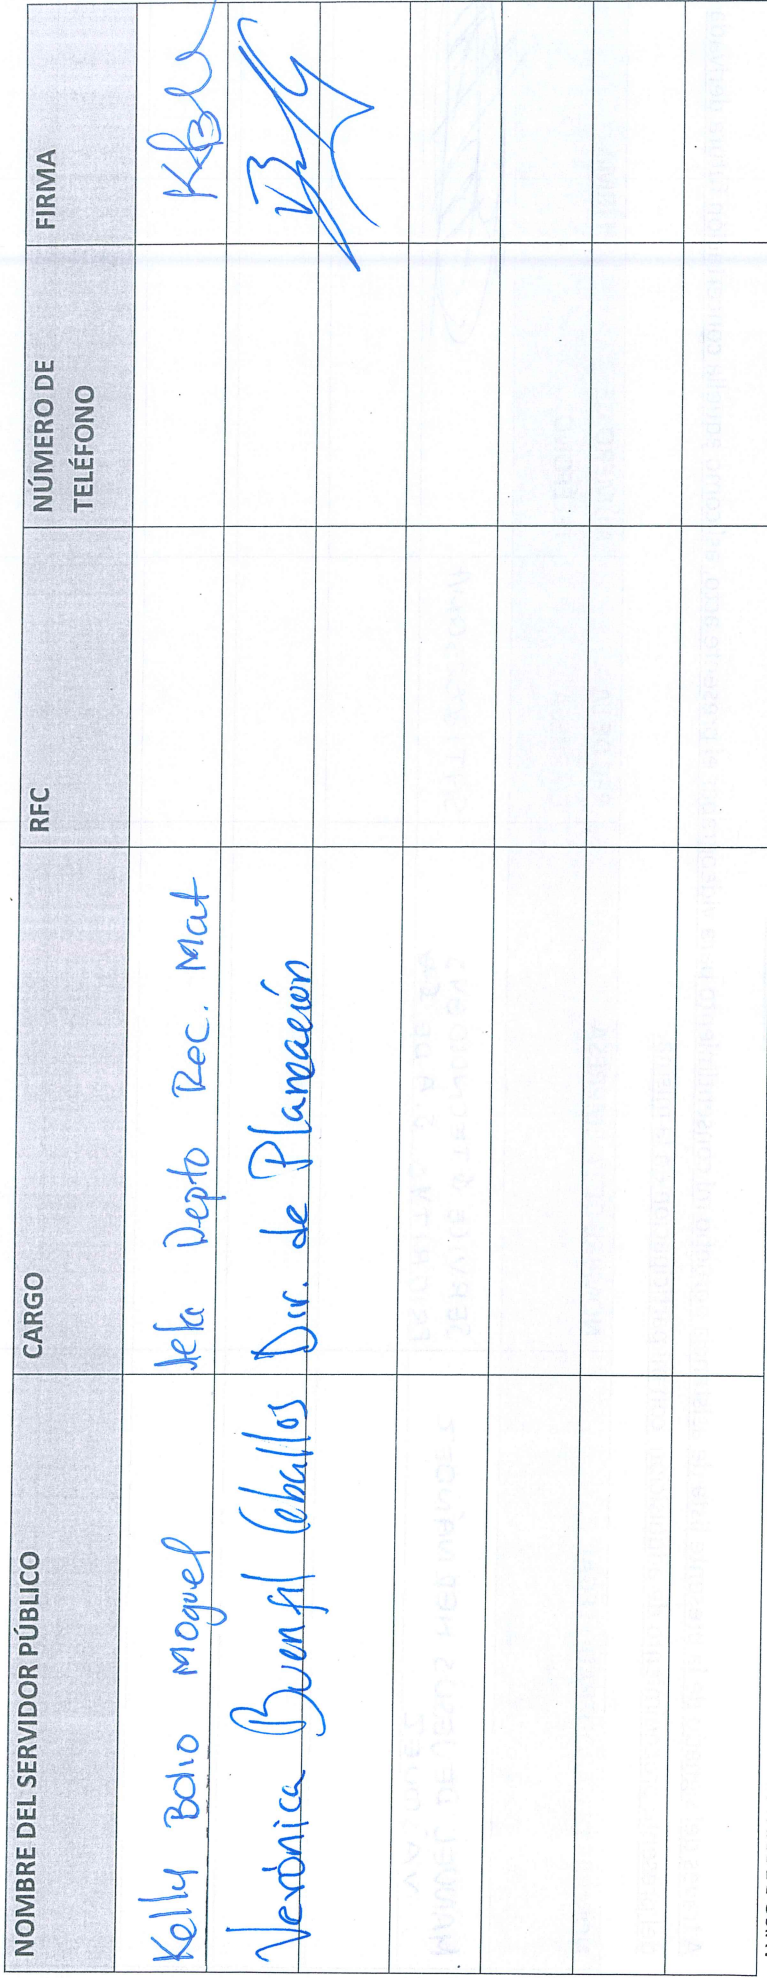 NOMBRE DEL SERVIDOR PÚBLICO CARGO RFC NÚMERO DE TELÉFONO FIRMA
Kelly Bolio Moguel Jefa Depto Rec. Mat
Verónica Buenfil Ceballos Dir. de Planeación